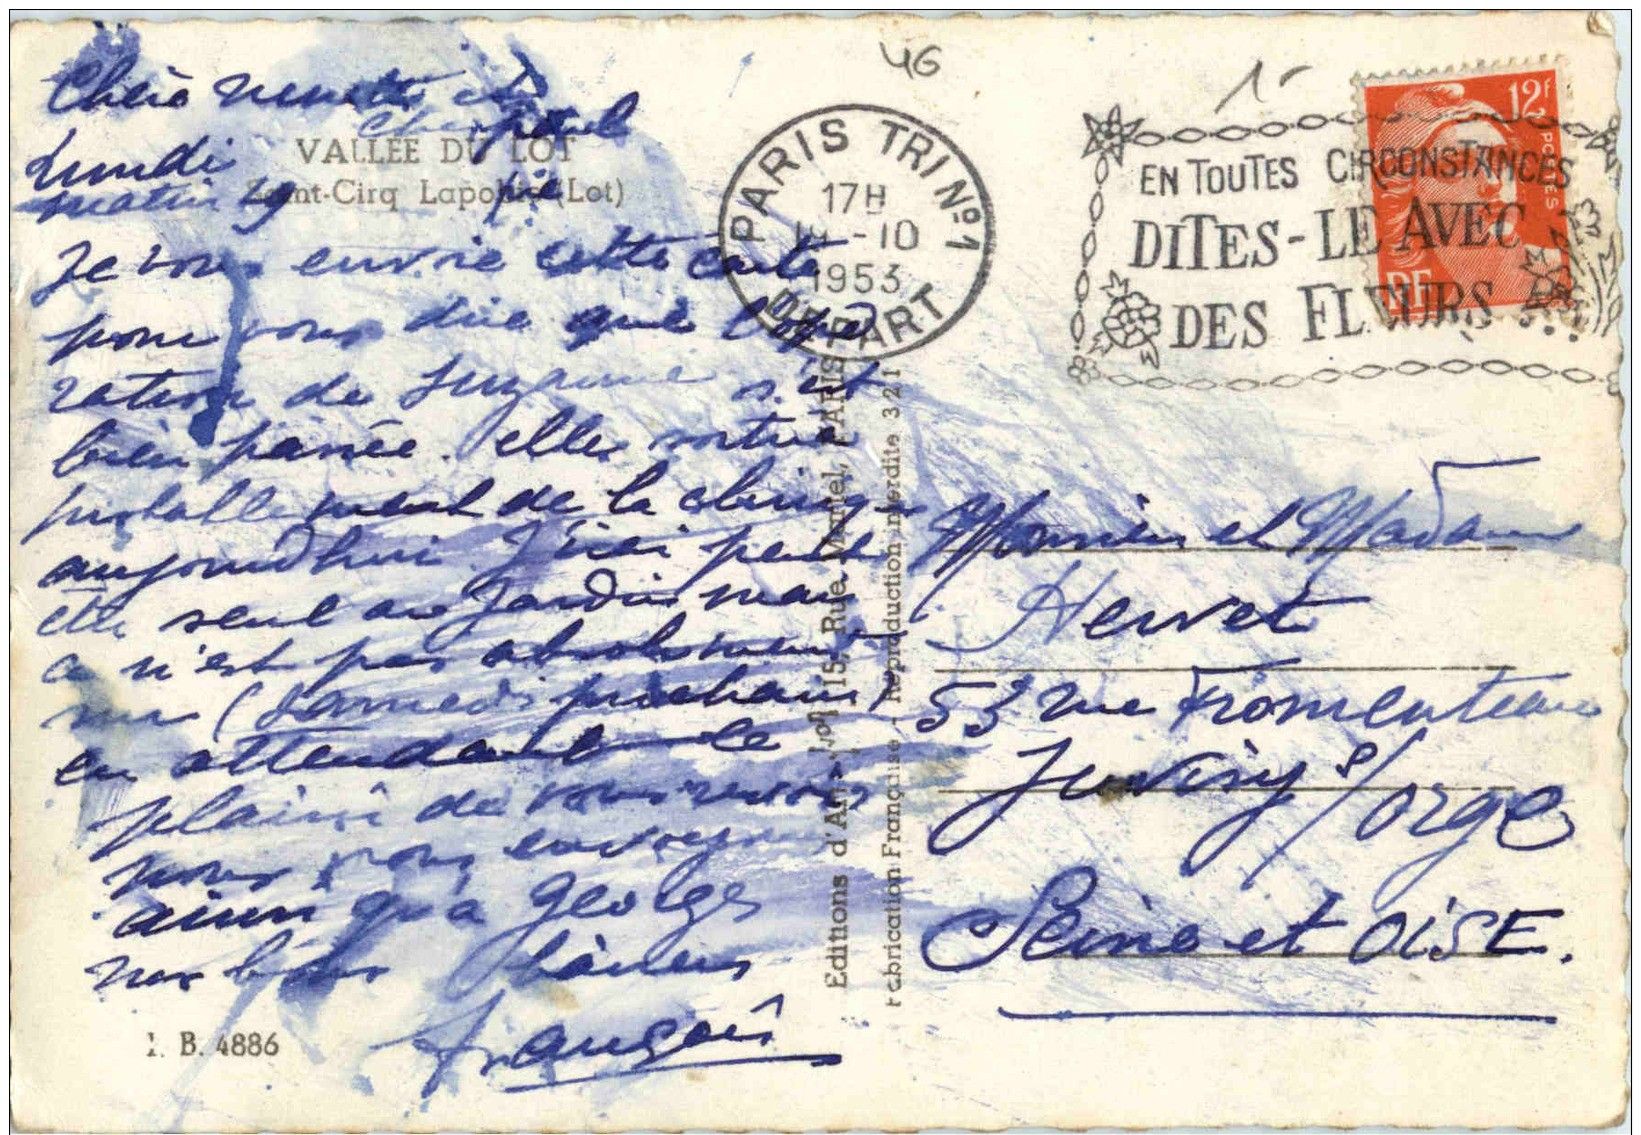 46
1-
VALLÉE DU LOT
Saint-Cirq Lapopie (Lot)
Lundi
matin 19
Je vous envoie cette carte
pour vous dire que l'opé
ration de Suzanne s'est
bien passée. elle
de la cliniq
aujourd'hui. J'irai peut
etre seul au jardin mais
ce n'est pas absolument
(Samedi prochain)
en attendant le
plaisir de vous revoir
nous vous envoyons
ainsi qu'à Georges
nos bons baisers
François
I. B. 4886
Editions d'Art Rue PARIS
Fabrication Française - Reproduction interdite 321
PARIS TRI Nº1
17H
-10
1953
DEPART
EN TOUTES CIRCONSTANCES
DITES-LE AVEC
DES FLEURS
12F
POSTES
RF
Monsieur et Madame
Hervet
53 rue Fromenteau
Juvisy s/ orge
Seine et OISE.